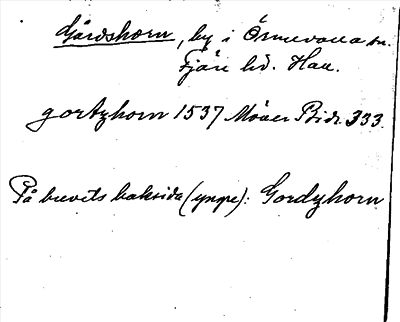 Gårdshorn, by i Ölmevalla sn.
Fjäre hd. Hall.
gortzhorn 1537 Möller Bidr. 333.
På brevets baksida (yngre): Gordzhorn